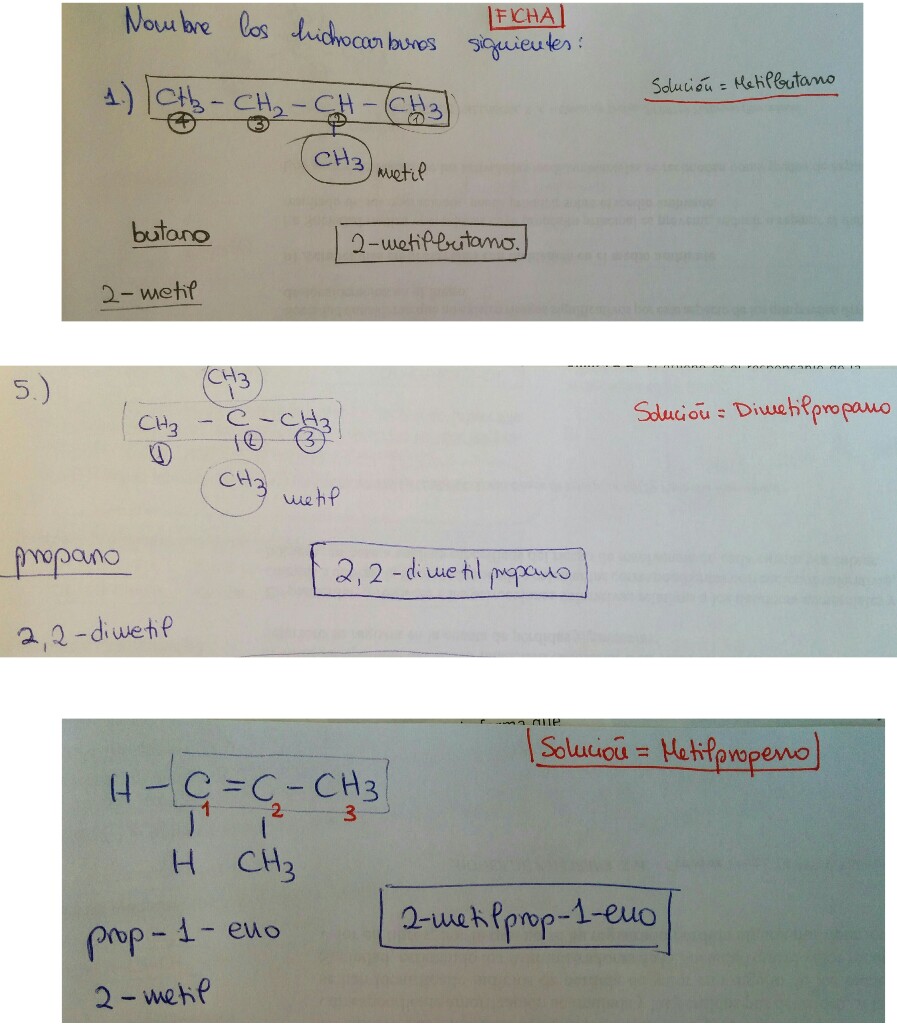 FICHA
Nombre los hidrocarburos siguientes:
1.) CH3 - CH2 - CH - CH3
4 3 2 1
CH3 metil
Solución = Metilbutano
butano
2-metilbutano.
2-metil
5.)
CH3
CH3 - C - CH3
1 2 3
CH3 metil
Solución = Dimetilpropano
propano
2,2-dimetilpropano
2,2-dimetil
Solución = Metilpropeno
H - C = C - CH3
1 2 3
H CH3
prop-1-eno
2-metilprop-1-eno
2-metil